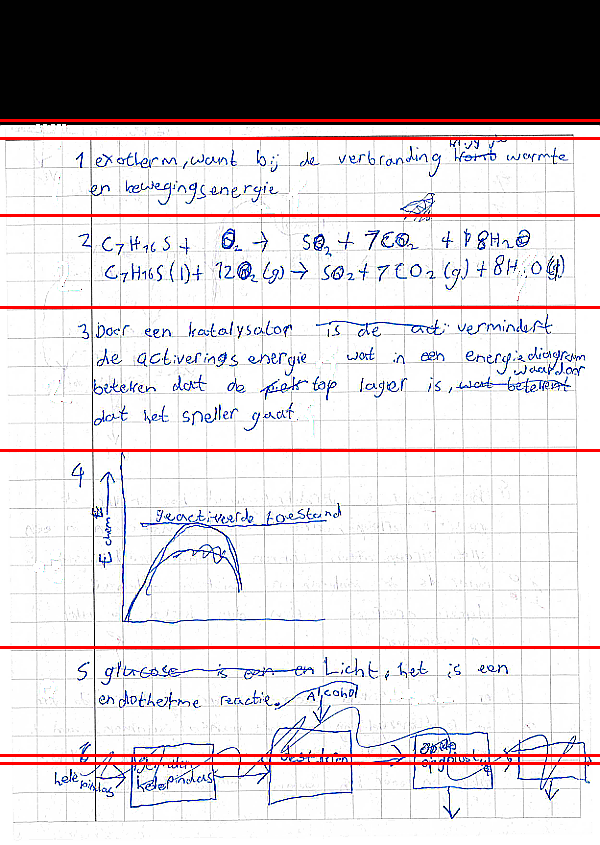 1 exotherm, want bij de verbranding krijg je warmte
en bewegingsenergie
2 C7H16S + O2 → SO2 + 7CO2 + 8H2O
C7H16S (l) + 12O2 (g) → SO2 + 7CO2 (g) + 8H2O (g)
3 Door een katalysator is de acti vermindert
de activerings energie wat in een energiediagram
beteken dat de piek top lager is, wat betekent waardoor
dat het sneller gaat.
4
E chem
geactiveerde toestand
5 glucose is een en Licht, het is een
endotherme reactie.
Alcohol
hele pindas
hele pindas